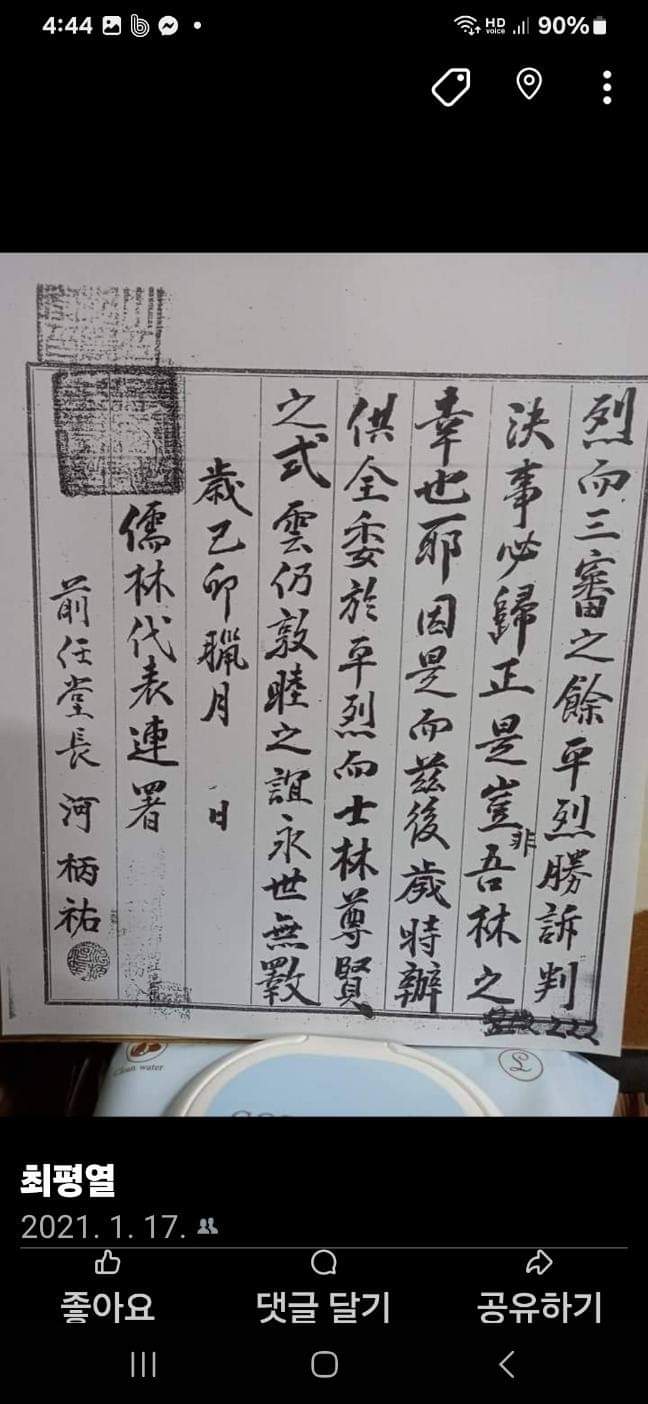 4:44
HD voice
90%
烈而三審之餘平烈勝訴判
決事必歸正是豈非吾林之
幸也耶因是而玆後歲時辦
供全委於平烈而士林尊賢
之式雲仍敦睦之誼永世無斁
歲己卯臘月 日
儒林代表連署
前任堂長 河柄祐
Clean water
최평열
2021. 1. 17.
좋아요
댓글 달기
공유하기